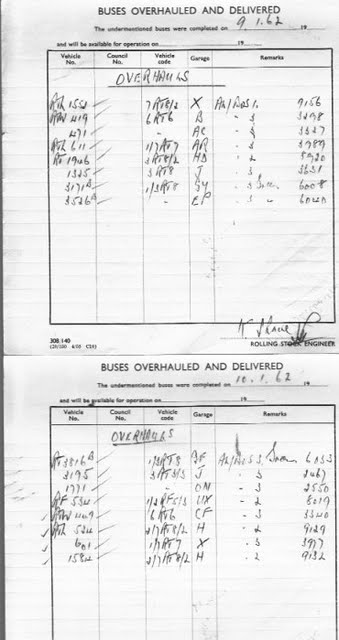 BUSES OVERHAULED AND DELIVERED
The undermentioned buses were completed on 9.1.62 19
and will be available for operation on 19
Vehicle No. Council No. Vehicle code Garage Remarks
OVERHAULS
RTL 1552 7RT8/2 X 9156
419 6RT6 B - 3 3298
471 - AC - 3 3327
RTL 611 1/7RT7 AR - 3 3989
RT 1926 3RT8/2 HD - 2 5920
1325 3RT8 J - 3 3631
3171 1/3RT8 - 3 6008
3526 - CP - 3 6040
308.140
ROLLING STOCK ENGINEER
BUSES OVERHAULED AND DELIVERED
The undermentioned buses were completed on 10.1.62 19
and will be available for operation on 19
Vehicle No. Council No. Vehicle code Garage Remarks
OVERHAULS
RT 3816 1/3RT8 6253
3195 J - 3 2467
1771 - ON - 3 2550
RF 534 UX - 2 8019
449 6RT6 CF - 3 3340
RTL 524 2/7RT8/2 H - 2 9129
601 1/7RT7 X - 3 3977
1584 2/7RT8/2 H - 2 9132